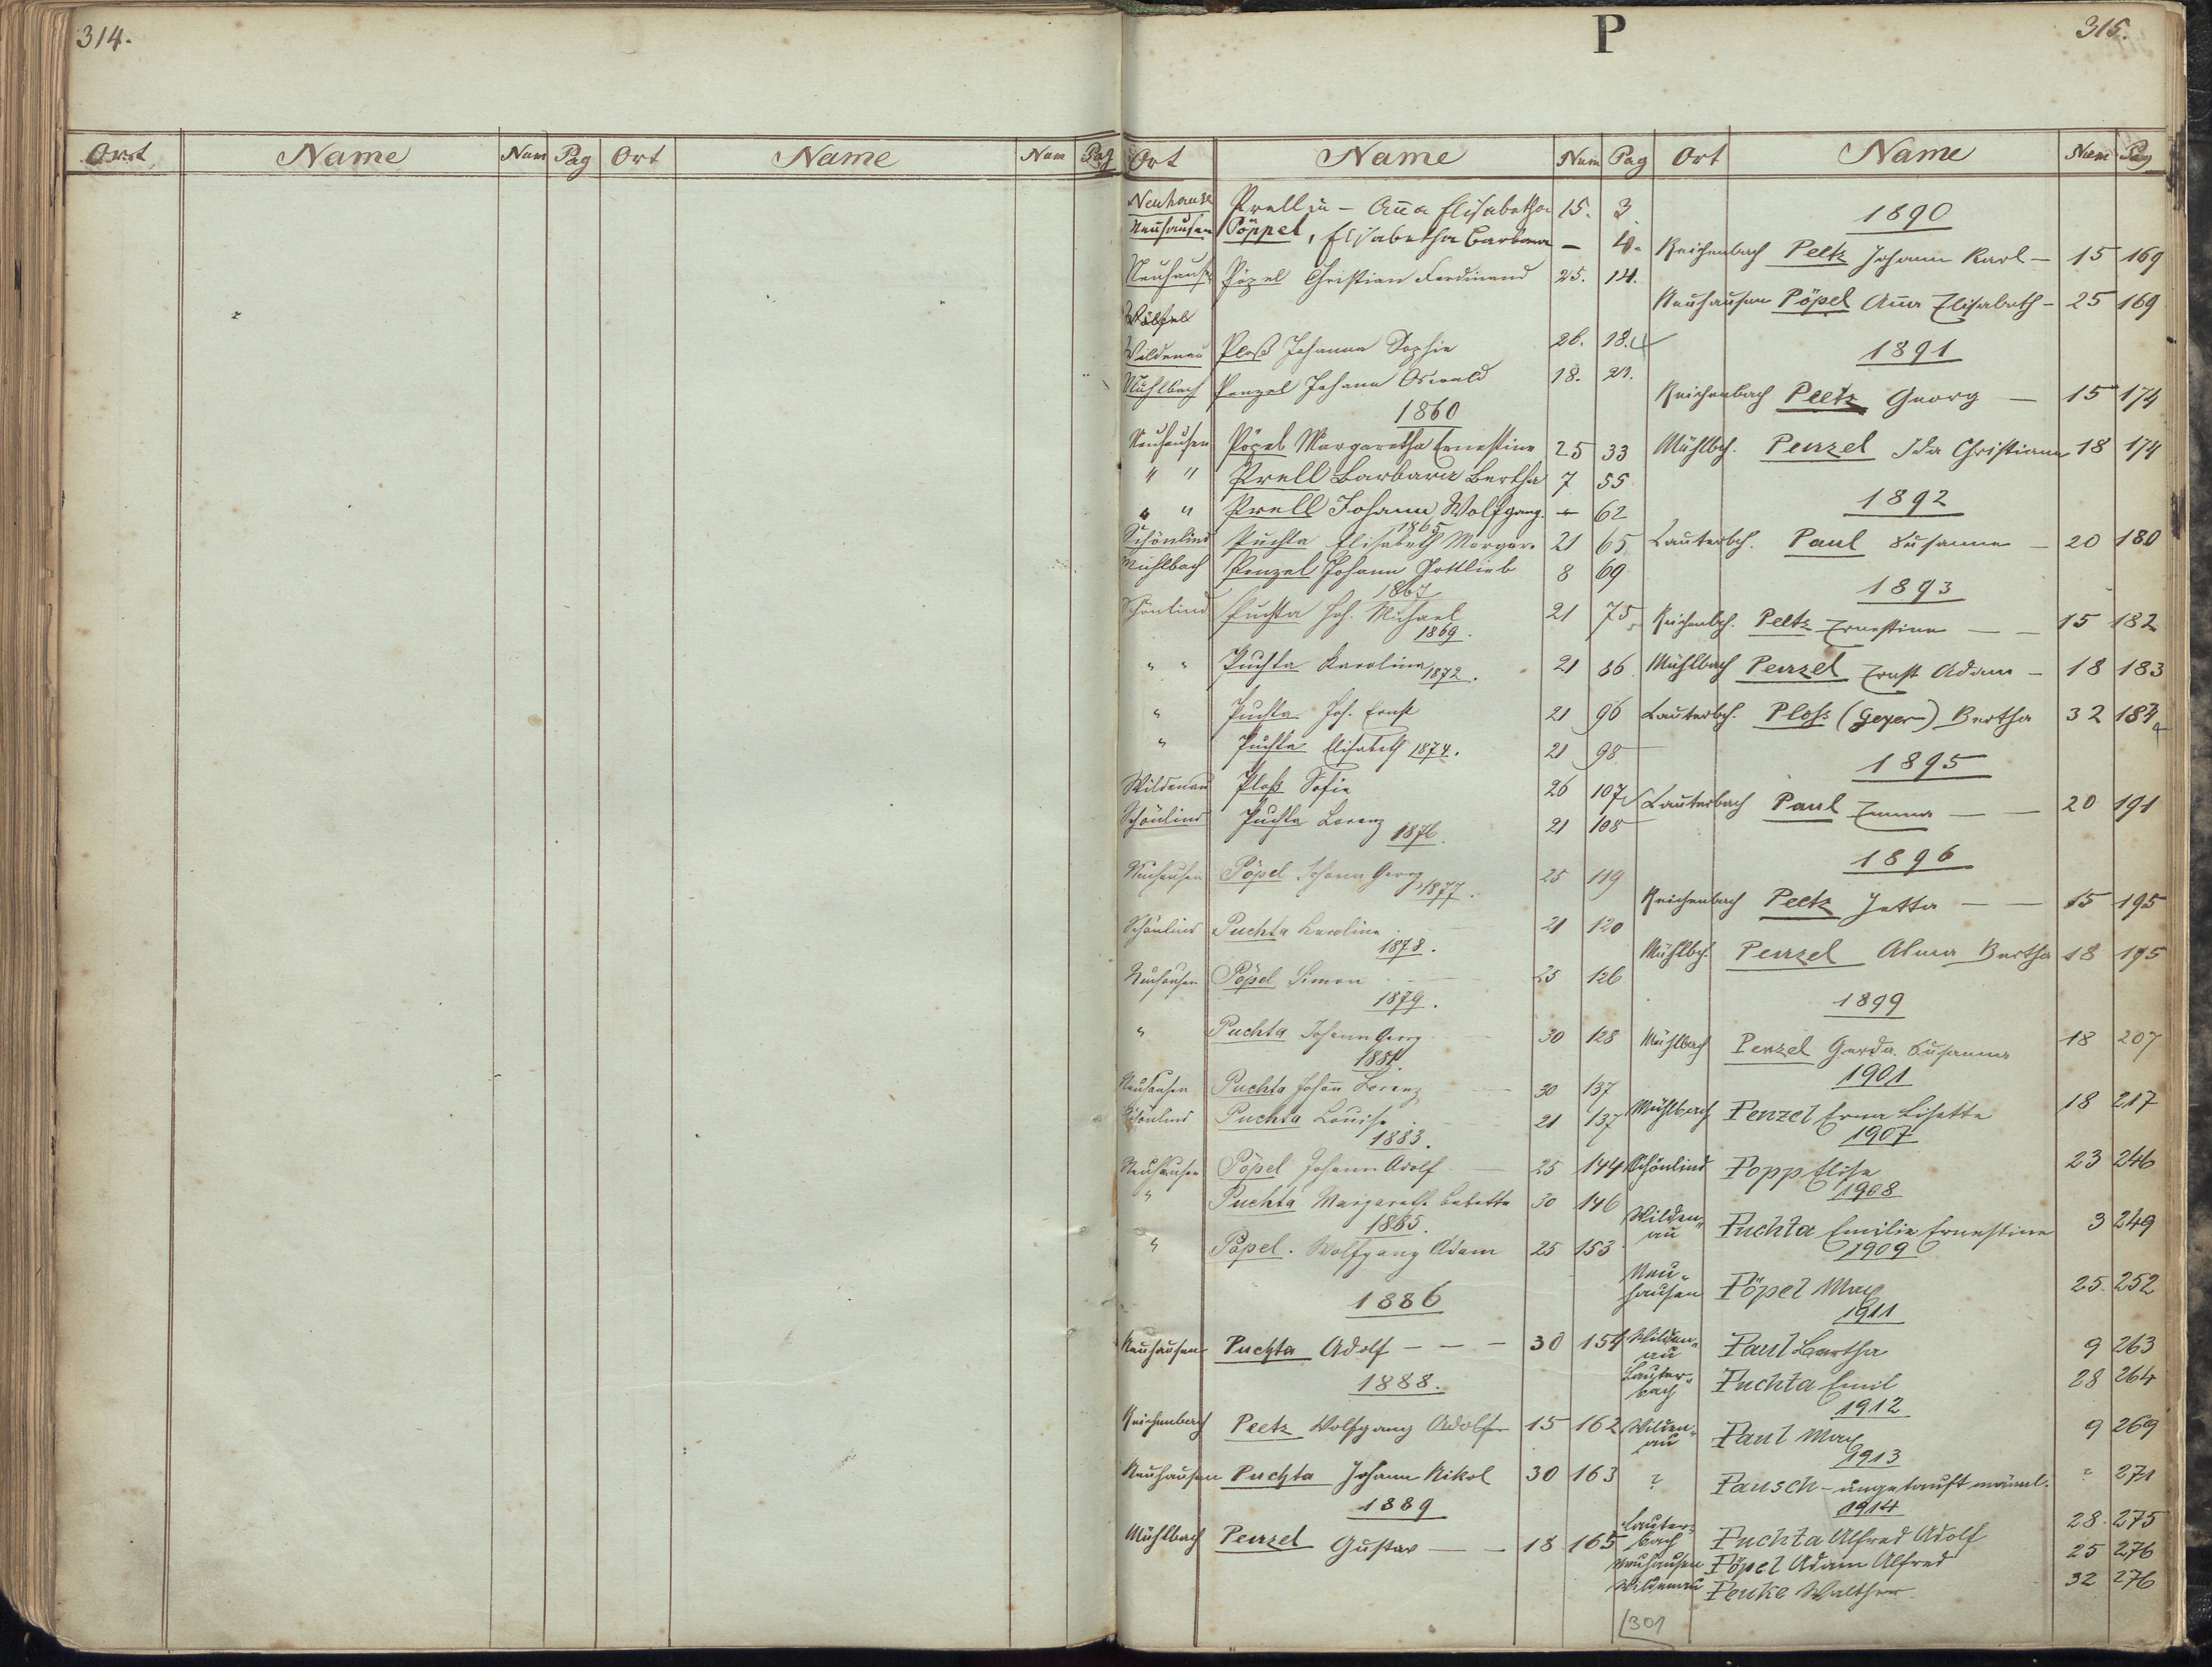 314.
Ort Name Num Pag Ort Name Num Pag
P
315.
Ort Name Num Pag
Neuhause Prellin - Anna Elisabetha 15. 3
Neuhausen Pöppel, Elisabetha Barbara — 4.
Neuhausen Pözel Christian Ferdinand 25. 14.
Wildenau Ploß Johanna Sophie 26. 18.
Mühlbach Penzel Johann Oswald 18. 21.
1860
Neuhausen Pöpel Margaretha Ernestine 25 33
" " Prell Barbara Bertha 7 55
" " Prell Johann Wolfgang. " 62
1865
Schönlind Puchta Elisabeth Margar. 21 65
Mühlbach Penzel Johann Gottlieb 8 69
1867
Schönlind Puchta Joh. Michael 21 75
1869.
" " Puchta Karolina 21 86
1872.
" Puchta Joh. Ernst 21 96
" Puchta Elisabeth 1874. 21 98
Wildenau Ploß Sofie 26 107
Schönlind Puchta Lorenz 21 108
1876.
Neuhausen Pöpel Johann Georg 25 119
1877.
Schönlind Puchta Karoline 21 120
1878.
Neuhausen Pöpel Simon 25 126
1879.
" Puchta Johann Georg 30 128
1881.
Neuhausen Puchta Johann Lorenz 30 137
Schönlind Puchta Louise 21 137
1883.
Neuhausen Pöpel Johann Adolf 25 144
" Puchta Margareth. Babette 30 146
1885.
" Pöpel. Wolfgang Adam 25 153
1886
Neuhausen Puchta Adolf — — — 30 154
1888.
Reichenbach Peetz Wolfgang Adolf 15 162
Neuhausen Puchta Johann Nikol 30 163
1889
Mühlbach Penzel Gustav — — 18 165
Ort Name Num Pag
1890
Reichenbach Peetz Johann Karl — 15 169
Neuhausen Pöpel Anna Elisabeth — 25 169
1891
Reichenbach Peetz Georg — 15 174
Mühlbch. Penzel Ida Christiana 18 174
1892
Lauterbch. Paul Susanna — 20 180
1893
Reichenbch. Peetz Ernestine — — 15 182
Mühlbach Penzel Ernst Adam — 18 183
Lauterbch. Ploß (Geyer) Bertha 32 184
1895
Lauterbach Paul Emma — — 20 191
1896
Reichenbach Peetz Jetta — — 15 195
Mühlbch. Penzel Alma Bertha 18 195
1899
Mühlbach Penzel Gerda Susanna 18 207
1901
Mühlbach Penzel Erna Lisette 18 217
1907
Schönlind Popp Elise 23 246
1908
Wilden-
au Puchta Emilie Ernestine 3 249
1909
Neu-
hausen Pöpel Max 25 252
1911
Wilden-
au Paul Bertha 9 263
Lauter-
bach Puchta Emil 28 264
1912
Wilden-
au Paul Max 9 269
1913
? Pausch - ungetauft männl. ? 271
1914
Lauter-
bach Puchta Alfred Adolf 28. 275
Neuhausen Pöpel Adam Alfred 25 276
Wildenau Penke Walther 32 276
301